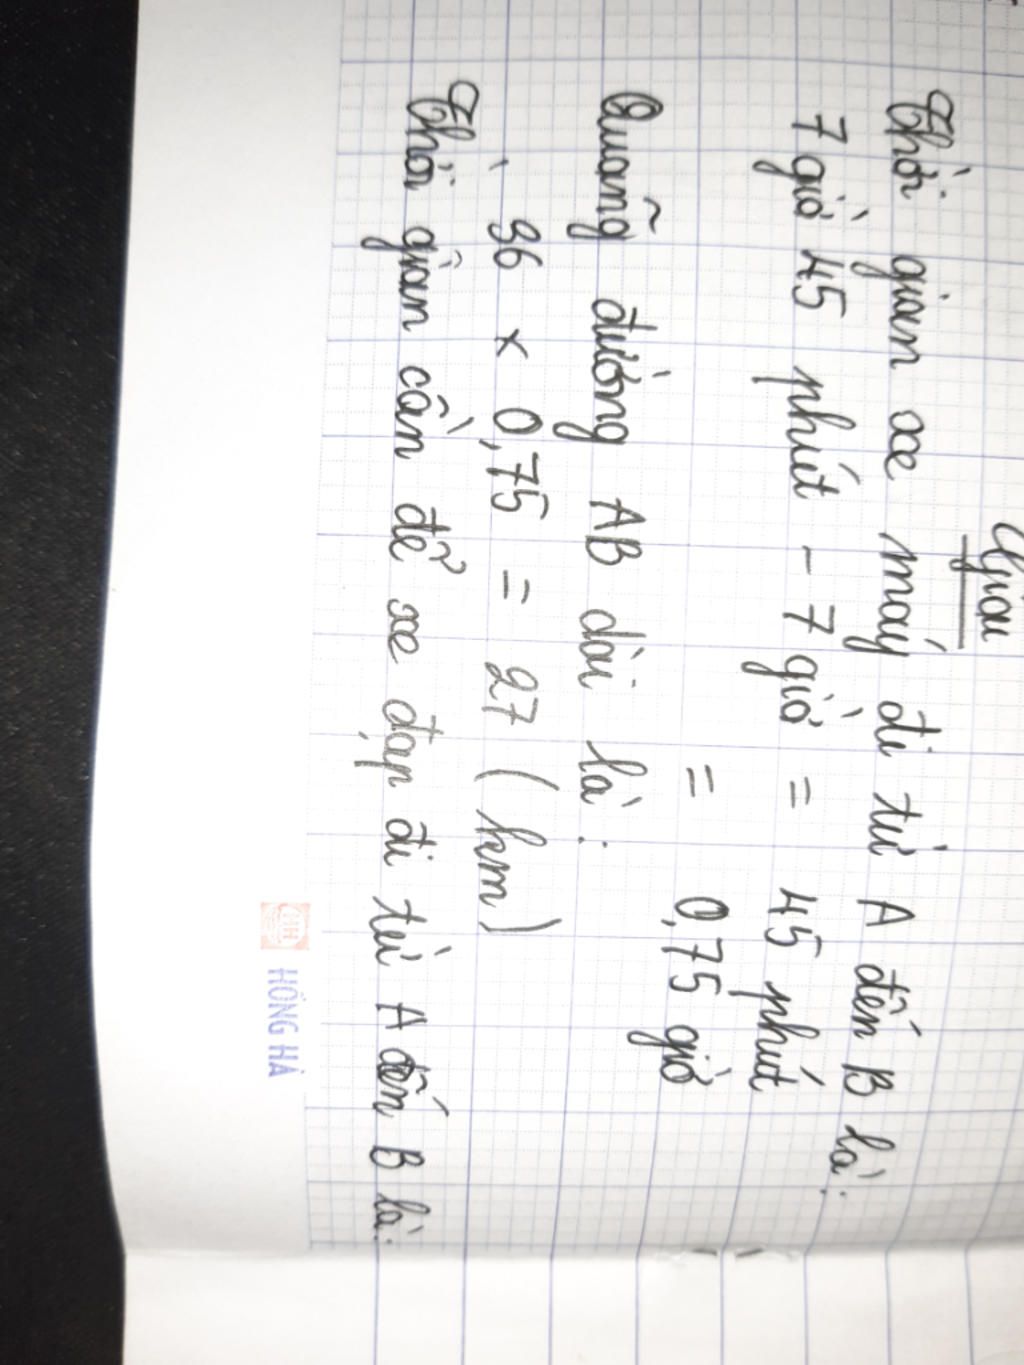 Giải
Thời gian xe máy đi từ A đến B là:
7 giờ 45 phút - 7 giờ = 45 phút
= 0,75 giờ
Quãng đường AB dài là:
36 x 0,75 = 27 (km)
Thời gian cần để xe đạp đi từ A đến B là:
HỒNG HÀ